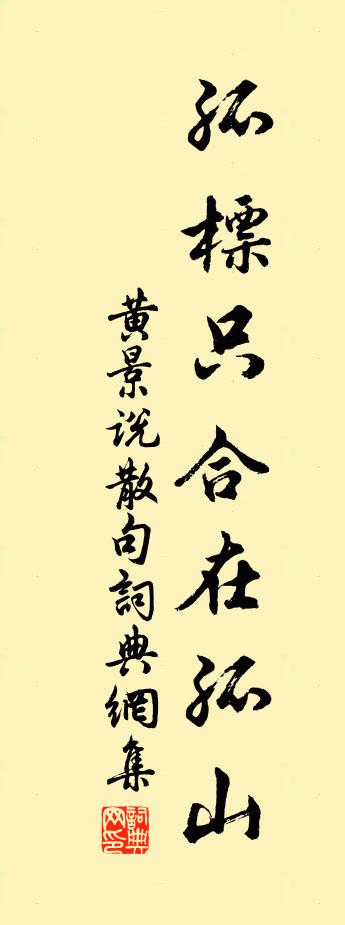 孤標只合在孤山
黄景说散句詞典網集
詞典網印